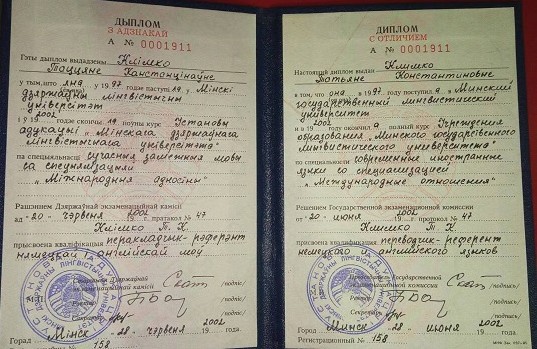 ДЫПЛОМ
З АДЗНАКАЙ
А № 0001911
Гэты дыплом выдадзены Клімко
Таццяне Канстанцінаўне
у тым, што яна у 1997 годзе паступіла у Мінскі
дзяржаўны лінгвістычны
універсітэт
і ў 2002 годзе скончыла поўны курс Установы
адукацыі "Мінскага дзяржаўнага
лінгвістычнага універсітэта"
па спецыяльнасці сучасныя замежныя мовы
са спецыялізацыяй
"Міжнародныя адносіны"
Рашэннем Дзяржаўнай экзаменацыйнай камісіі
ад "20" чэрвеня 2002 г. пратакол № 47
Клімко Т. К.
прысвоена кваліфікацыя перакладчык-рэферэнт
нямецкай і англійскай моў
Старшыня Дзяржаўнай
экзаменацыйнай камісіі /подпіс/
М.П. Рэктар /подпіс/
Сакратар /подпіс/
Горад Мінск 28 чэрвеня 2002 года
158
ДИПЛОМ
С ОТЛИЧИЕМ
А № 0001911
Настоящий диплом выдан Климко
Татьяне Константиновне
в том, что она в 1997 году поступила в Минский
государственный лингвистический
университет
и в 2002 году окончила полный курс Учреждения
образования "Минского государственного
лингвистического университета"
по специальности современные иностранные
языки со специализацией
"Международные отношения"
Решением Государственной экзаменационной комиссии
от "20" июня 2002 г. протокол № 47
Климко Т. К.
присвоена квалификация переводчик-референт
немецкого и английского языков
Председатель Государственной
экзаменационной комиссии /подпись/
Ректор /подпись/
Секретарь /подпись/
Город Минск 28 июня 2002 года
Регистрационный № 158